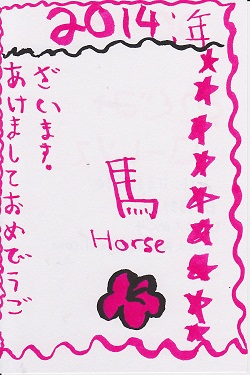 2014年
あけましておめでうご
ざいます。
馬
Horse